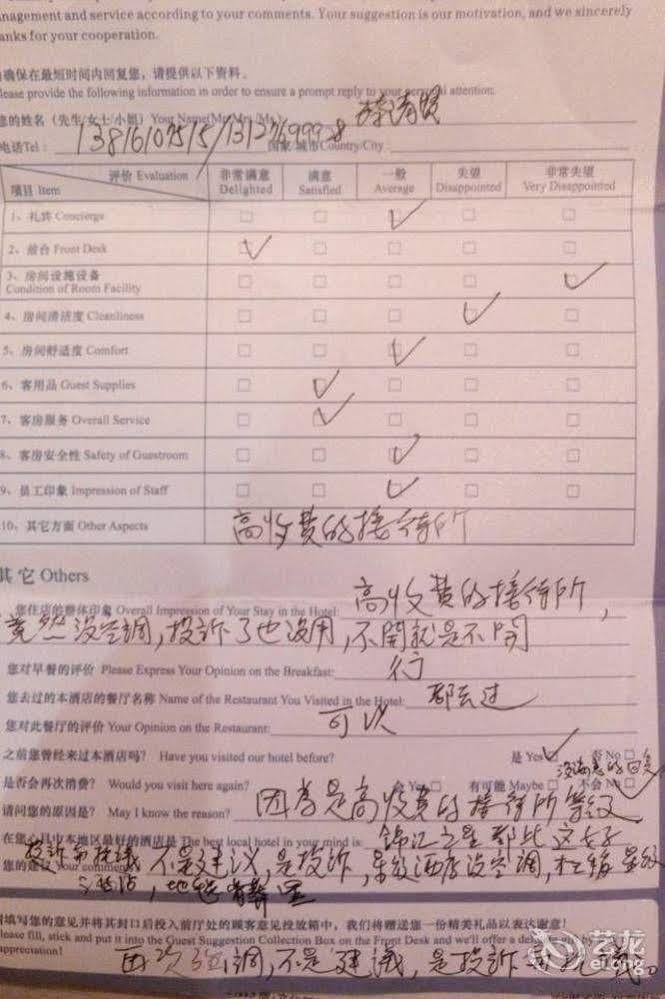 nagement and service according to your comments. Your suggestion is our motivation, and we sincerely
anks for your cooperation.
确保在最短时间内回复您, 请提供以下资料.
lease provide the following information in order to ensure a prompt reply to your personal attention:
您的姓名 (先生/女士/小姐) Your Name(Mr./Mrs./Ms.)
电话Tel: 13816107515/13127699928 国家/城市Country/City
项目 Item 评价 Evaluation 非常满意 Delighted 满意 Satisfied 一般 Average 失望 Disappointed 非常失望 Very Disappointed
1、礼宾 Concierge
2、前台 Front Desk
3、房间设施设备
Condition of Room Facility
4、房间清洁度 Cleanliness
5、房间舒适度 Comfort
6、客用品 Guest Supplies
7、客房服务 Overall Service
8、客房安全性 Safety of Guestroom
9、员工印象 Impression of Staff
10、其它方面 Other Aspects 高收费的接待所
其它 Others
您住店的整体印象 Overall Impression of Your Stay in the Hotel: 高收费的接待所,
竟然没空调,投诉了也没用,不開就是不開
您对早餐的评价 Please Express Your Opinion on the Breakfast: 行
您去过的本酒店的餐厅名称 Name of the Restaurant You Visited in the Hotel: 都去过
您对此餐厅的评价 Your Opinion on the Restaurant: 可以
之前您曾经来过本酒店吗? Have you visited our hotel before? 是 Yes 否 No
没满意的回复
是否会再次消费? Would you visit here again? 会 Yes 有可能 Maybe 不会 No
请问您的原因是? May I know the reason? 因为是高收费的接待所等级
在您心目中本地区最好的酒店是 The best local hotel in your mind is: 锦江之星都比这好
您的建议 Your comments 不是建议,是投诉,星级酒店没空调,
填写您的意见并将其封口后投入前厅处的顾客意见投放箱中, 我们将赠送您一份精美礼品以表达谢意!
lease fill, stick and put it into the Guest Suggestion Collection Box on the Front Desk and we'll offer a
appreciation!
再次强调,不是建議,是投訴
艺龙
elong.com